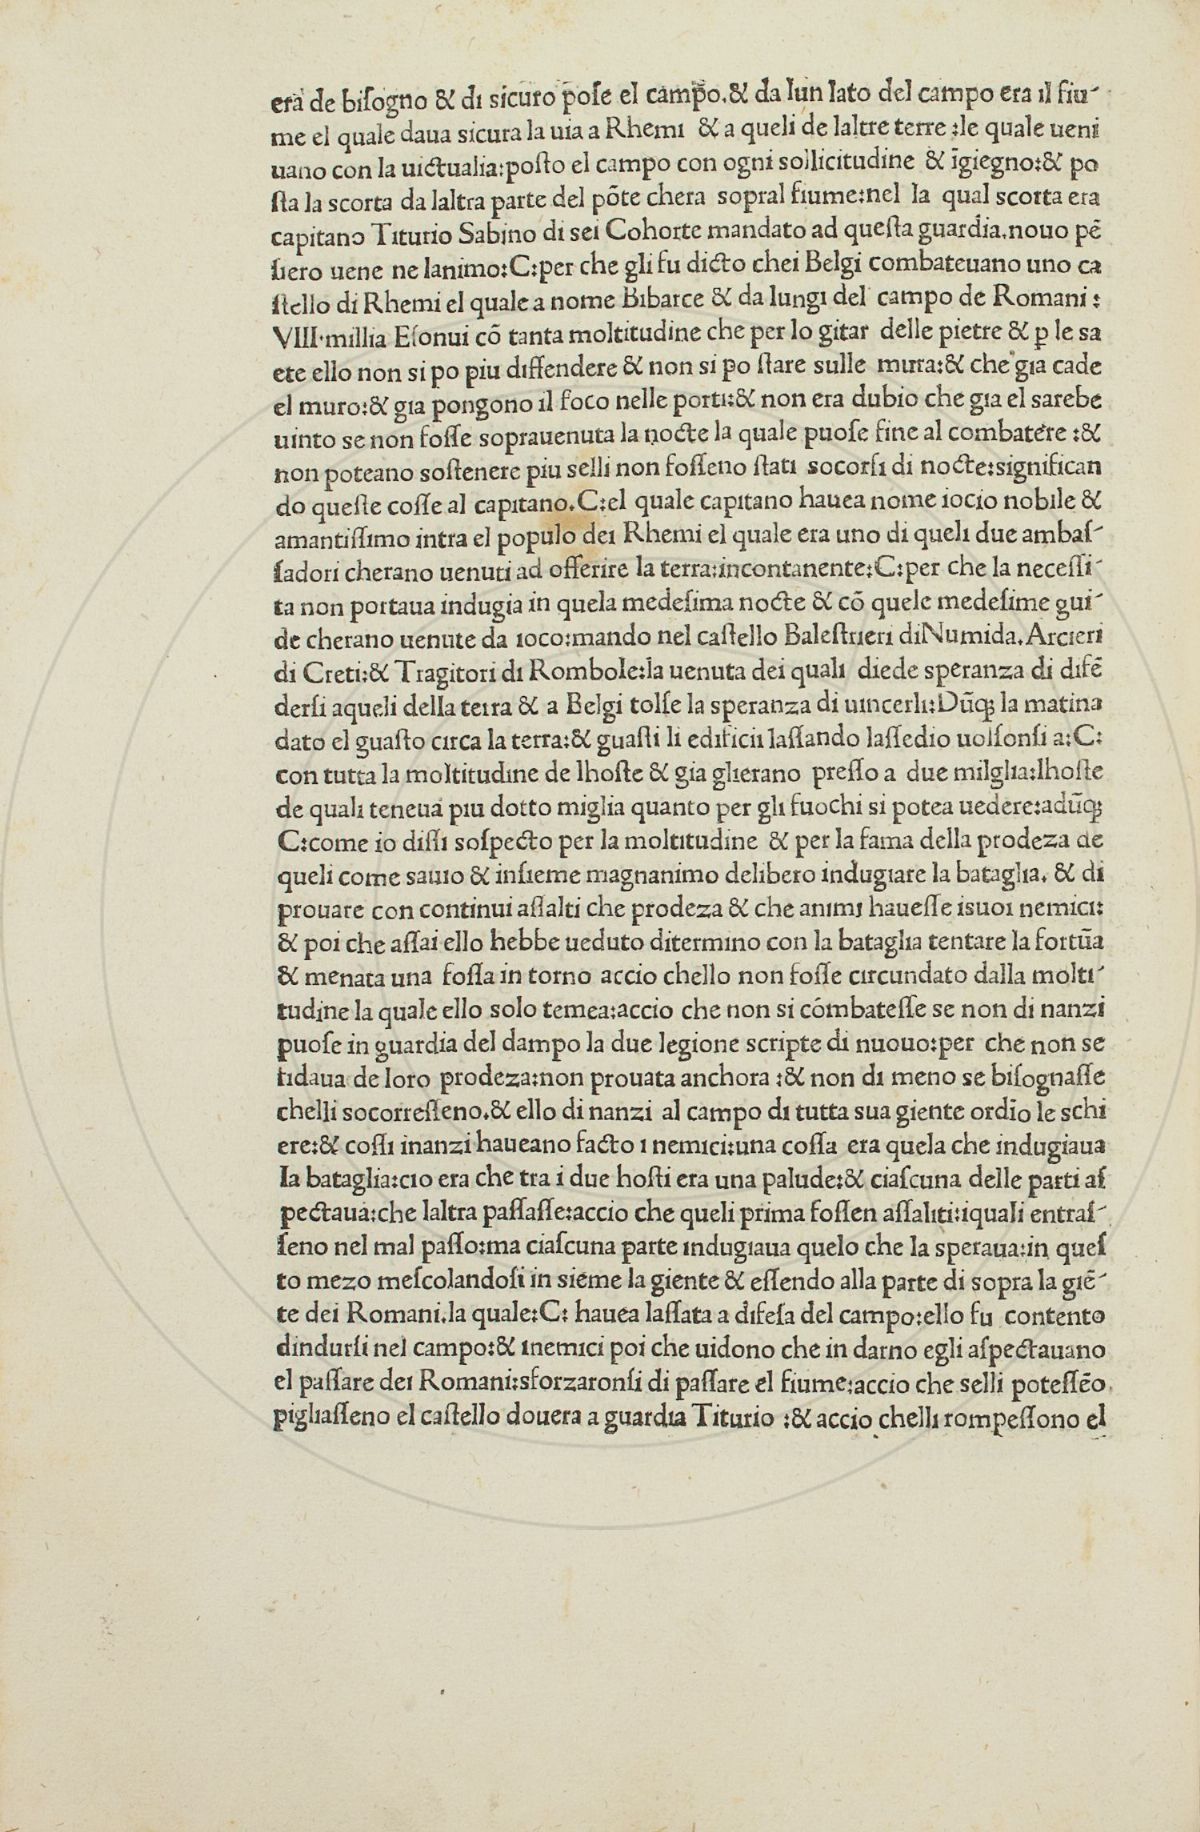 era de biſogno & di sicuro poſe el campo.& da lun lato del campo era il fiu-
me el quale daua sicura la uia a Rhemi & a queli de laltre terre :le quale ueni
uano con la uictualia:poſto el campo con ogni sollicitudine & īgiegno:& po
ſta la scorta da laltra parte del pōte chera sopral fiume:nel la qual scorta era
capitano Titurio Sabino di sei Cohorte mandato ad queſta guardia.nouo pē
ſiero uene ne lanimo:C:per che gli fu dicto chei Belgi combateuano uno ca
ſtello di Rhemi el quale a nome Bibarce & da lungi del campo de Romani :
VIII.millia Eſonui cō tanta moltitudine che per lo gitar delle pietre & ꝑ le sa
ete ello non si po piu diffendere & non si po ſtare sulle mura:& che gia cade
el muro:& gia pongono il foco nelle porti:& non era dubio che gia el sarebe
uinto se non foſſe soprauenuta la nocte la quale puoſe fine al combatere :&
non poteano soſtenere piu selli non foſſeno ſtati socorſi di nocte:significan
do queſte coſſe al capitano.C:el quale capitano hauea nome iocio nobile &
amantiſſimo intra el populo dei Rhemi el quale era uno di queli due ambaſ-
ſadori cherano uenuti ad offerire la terra:incontanente:C:per che la neceſſi-
ta non portaua indugia in quela medeſima nocte & cō quele medeſime gui-
de cherano uenute da ioco:mando nel caſtello Baleſtrieri diNumida.Arcieri
di Creti:& Tragitori di Rombole:la uenuta dei quali diede speranza di difē
derſi aqueli della terra & a Belgi tolſe la speranza di uincerli:Dūqꝫ la matina
dato el guaſto circa la terra:& guaſti li edificii laſſando laſſedio uolſonſi a:C:
con tutta la moltitudine de lhoſte & gia glierano preſſo a due milglia:lhoſte
de quali teneua piu dotto miglia quanto per gli fuochi si potea uedere:adūqꝫ
C:come io diſſi soſpecto per la moltitudine & per la fama della prodeza de
queli come sauio & inſieme magnanimo delibero indugiare la bataglia. & di
prouare con continui aſſalti che prodeza & che animi haueſſe isuoi nemici:
& poi che aſſai ello hebbe ueduto ditermino con la bataglia tentare la fortūa
& menata una foſſa in torno accio chello non foſſe circundato dalla molti-
tudine la quale ello solo temea:accio che non si cōmbateſſe se non di nanzi
puoſe in guardia del dampo la due legione scripte di nuouo:per che non se
fidaua de loro prodeza:non prouata anchora :& non di meno se biſognaſſe
chelli socorreſſeno.& ello di nanzi al campo di tutta sua giente ordīo le schi
ere:& coſſi inanzi haueano facto i nemici:una coſſa era quela che indugiaua
la bataglia:cio era che tra i due hoſti era una palude:& ciaſcuna delle parti aſ
pectaua:che laltra paſſaſſe:accio che queli prima foſſen aſſaliti:iquali entraſ-
ſeno nel mal paſſo:ma ciaſcuna parte indugiaua quelo che la speraua:in queſ
to mezo meſcolandoſi in sieme la giente & eſſendo alla parte di sopra la giē-
te dei Romani.la quale:C: hauea laſſata a difeſa del campo:ello fu contento
dindurſi nel campo:& inemici poi che uidono che in darno egli aſpectauano
el paſſare dei Romani:sforzaronſi di paſſare el fiume:accio che selli poteſſēo
pigliaſſeno el caſtello douera a guardia Titurio :& accio chelli rompeſſono el